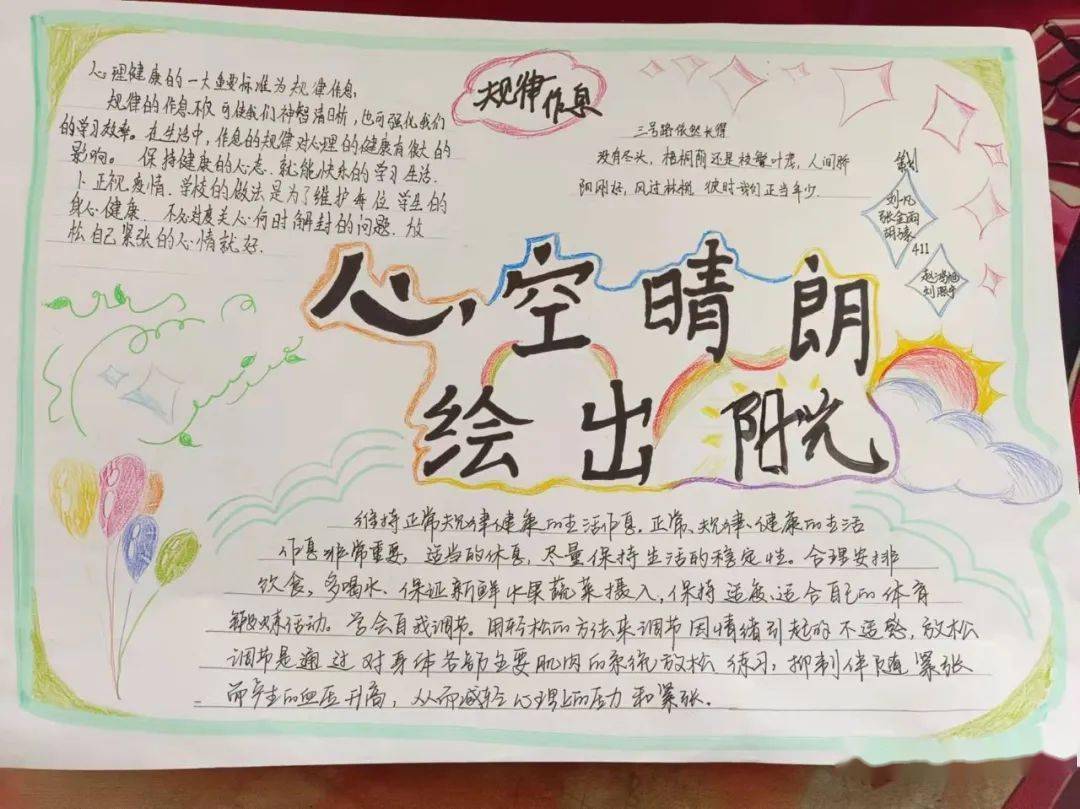 心理健康的一大重要标准为规律作息,
规律的作息不仅可使我们神智清晰,也可强化我们
的学习效率。在生活中,作息的规律对心理的健康有很大的
影响。保持健康的心态.就能快乐的学习生活.
卜正视疫情.学校的做法是为了维护每位学生的
身心健康.不必过度关心何时解封的问题.放
松自己紧张的心情就好.
规律作息
三号路依然长得
没有尽头,梧桐荫还是枝繁叶茂,人间骄
阳刚好,风过林梢 彼时我们正当年少.
刘一凡
张金雨
411
心,空晴朗
绘出阳光
维持正常规律健康的生活作息.正常、规律、健康的生活
作息非常重要,适当的休息,尽量保持生活的稳定性。合理安排
饮食,多喝水、保证新鲜水果蔬菜摄入,保持适度、适合自己的体育
锻炼活动。学会自我调节。用轻松的方法来调节因情绪引起的不适感,放松
调节是通过对身体各部主要肌肉的系统放松练习,抑制伴随紧张
而产生的血压升高,从而减轻心理上的压力和紧张.